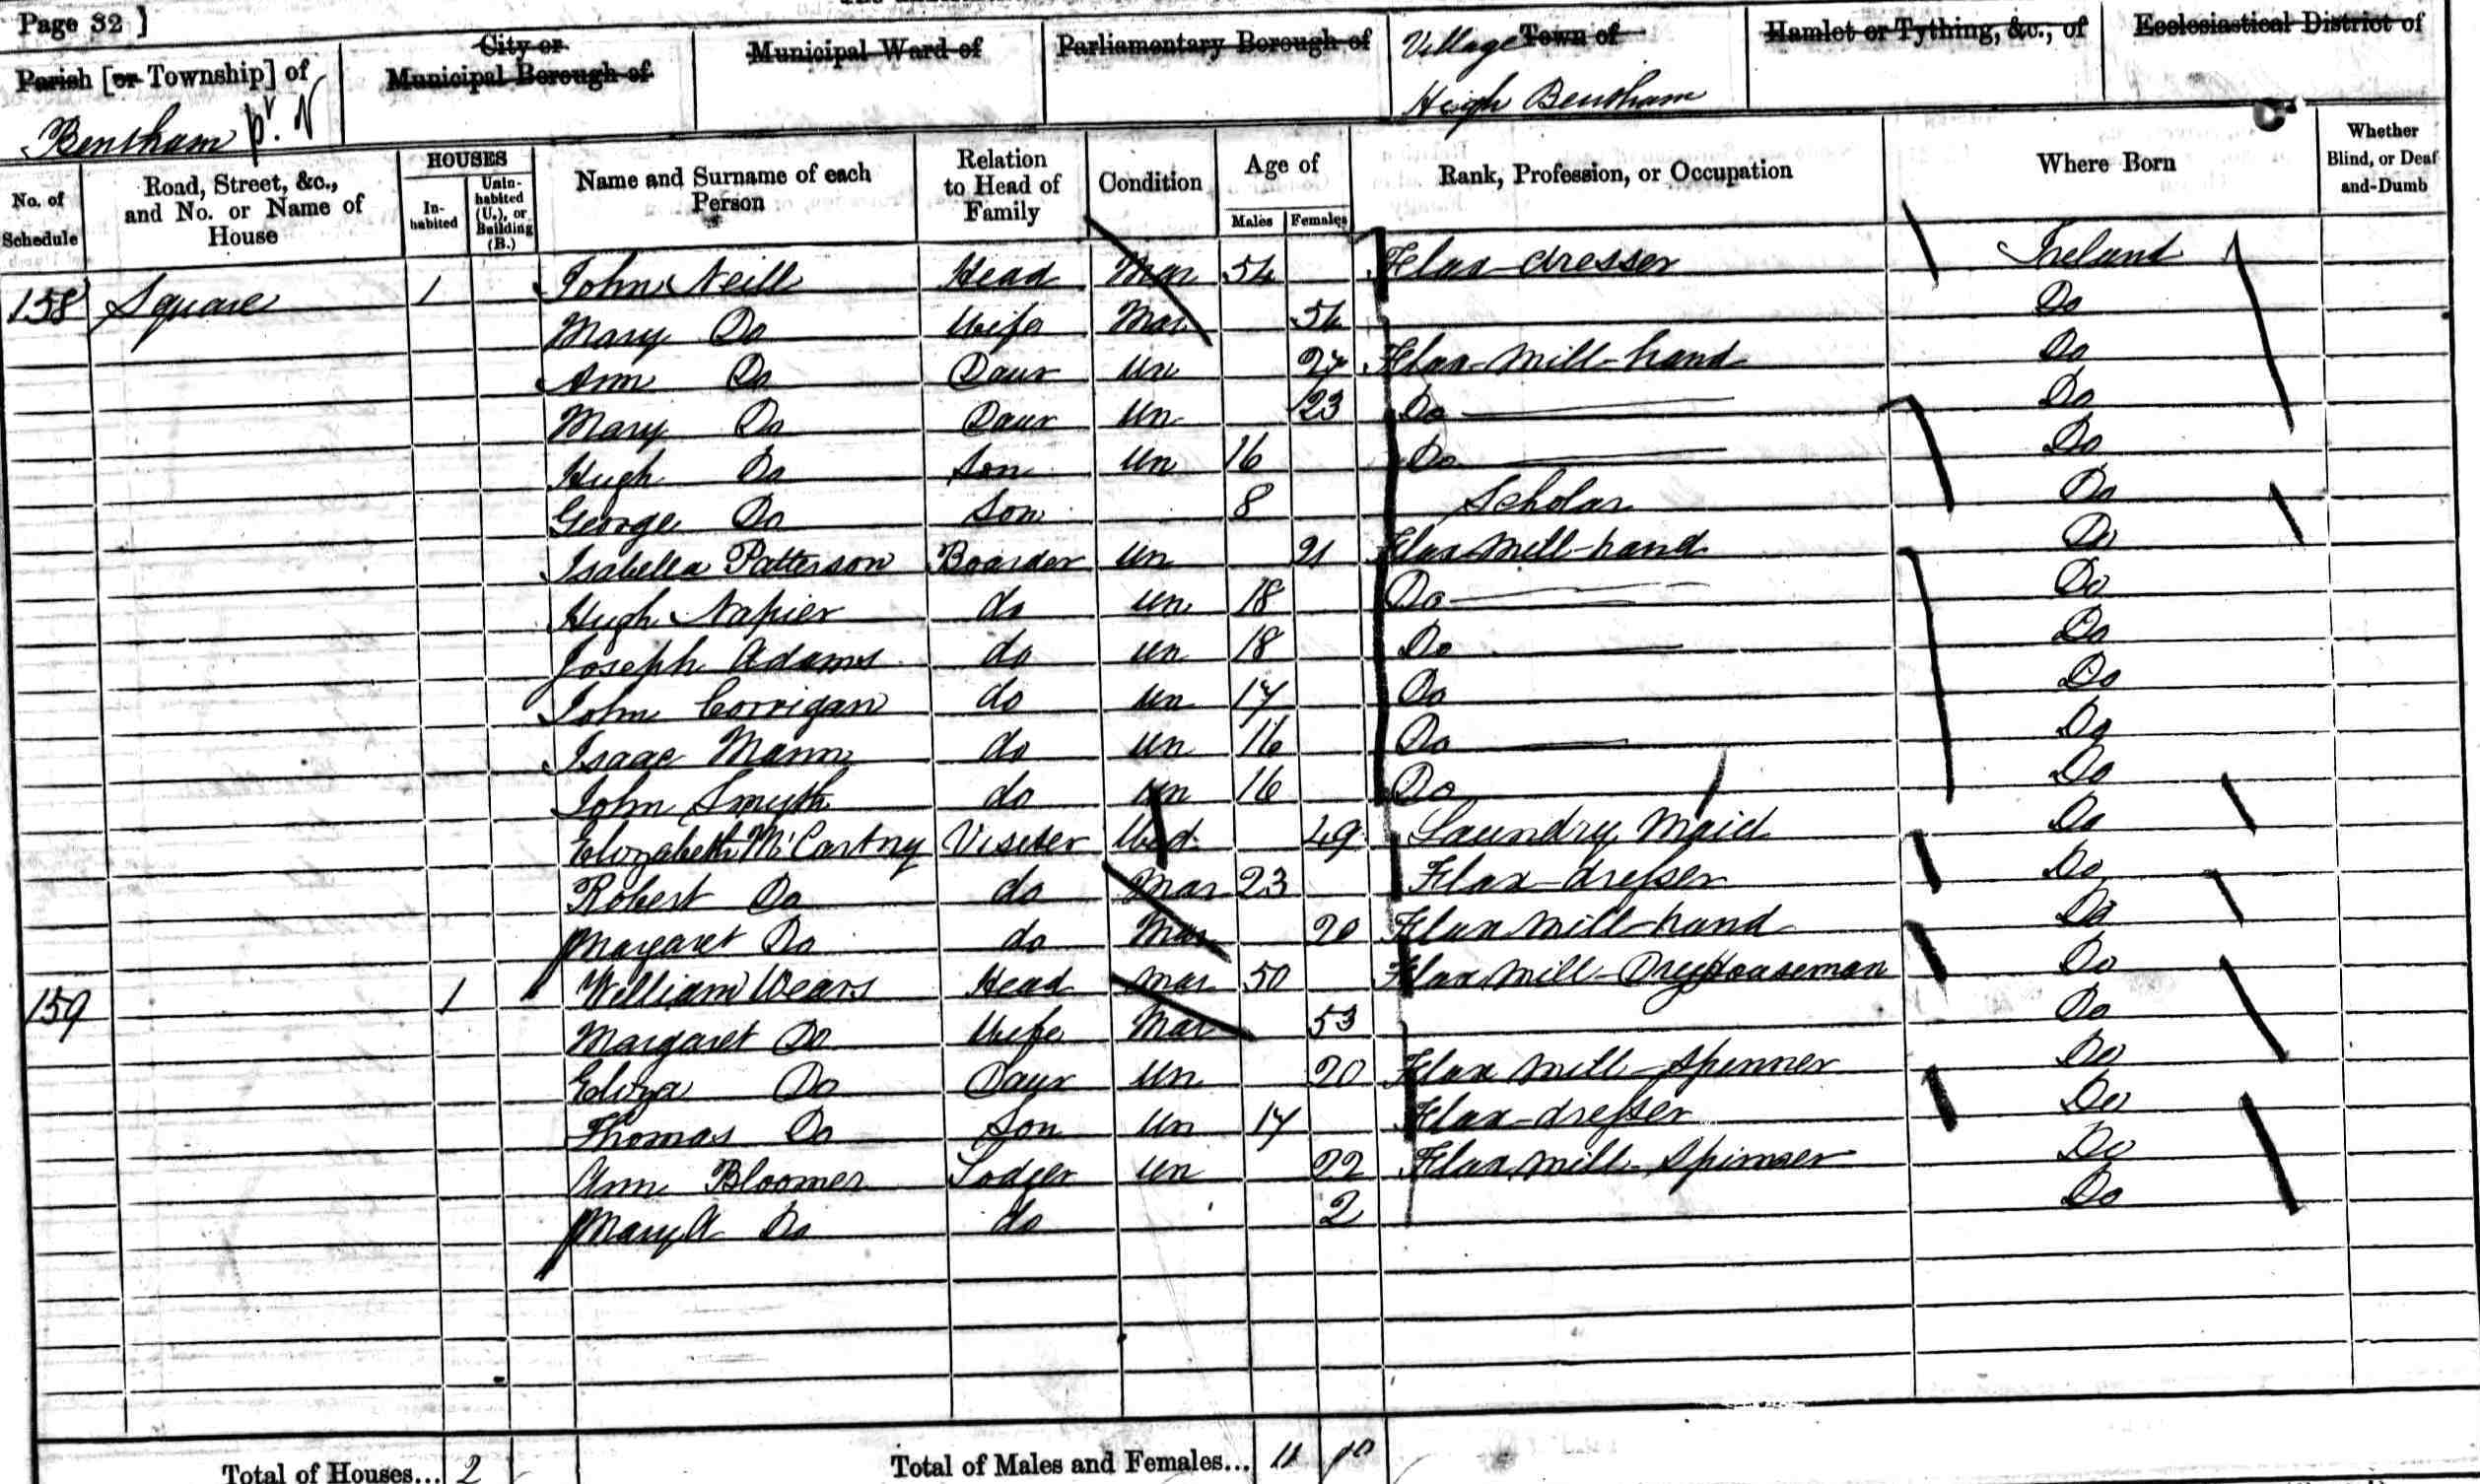 Page 32 ]
Parish [or Township] of
Bentham pt. N
City or
Municipal Borough of
Municipal Ward of
Parliamentary Borough of
Village Town of
High Bentham
Hamlet or Tything, &c., of
Ecclesiastical District of
No. of Schedule
Road, Street, &c., and No. or Name of House
HOUSES
In-habited
Unin-habited (U.), or Building (B.)
Name and Surname of each Person
Relation to Head of Family
Condition
Age of
Males
Females
Rank, Profession, or Occupation
Where Born
Whether Blind, or Deaf-and-Dumb
158 Square 1 John Neill Head Mar 54 Flax-dresser Ireland
Mary Do Wife Mar 54 Do
Ann Do Daur Un 27 Flax-mill-hand Do
Mary Do Daur Un 23 Do Do
Hugh Do Son Un 16 Do Do
George Do Son 8 Scholar Do
Isabella Patterson Boarder Un 21 Flax Mill-hand Do
Hugh Napier do Un 18 Do Do
Joseph Adams do Un 18 Do Do
John Corrigan do Un 17 Do Do
Isaac Mann do Un 16 Do Do
John Smyth do Un 16 Do Do
Elizabeth McCartny Visiter Wid. 49 Laundry Maid Do
Robert Do do Mar 23 Flax-dresser Do
Margaret Do do Mar 20 Flax Mill-hand Do
159 1 William Wears Head Mar 50 Flax Mill-Dryhouseman Do
Margaret Do Wife Mar 53 Do
Eliza Do Daur Un 20 Flax Mill-Spinner Do
Thomas Do Son Un 17 Flax-dresser Do
Ann Bloomer Lodger Un 22 Flax Mill-Spinner Do
Mary A Do do 2 Do
Total of Houses... 2
Total of Males and Females... 11 10